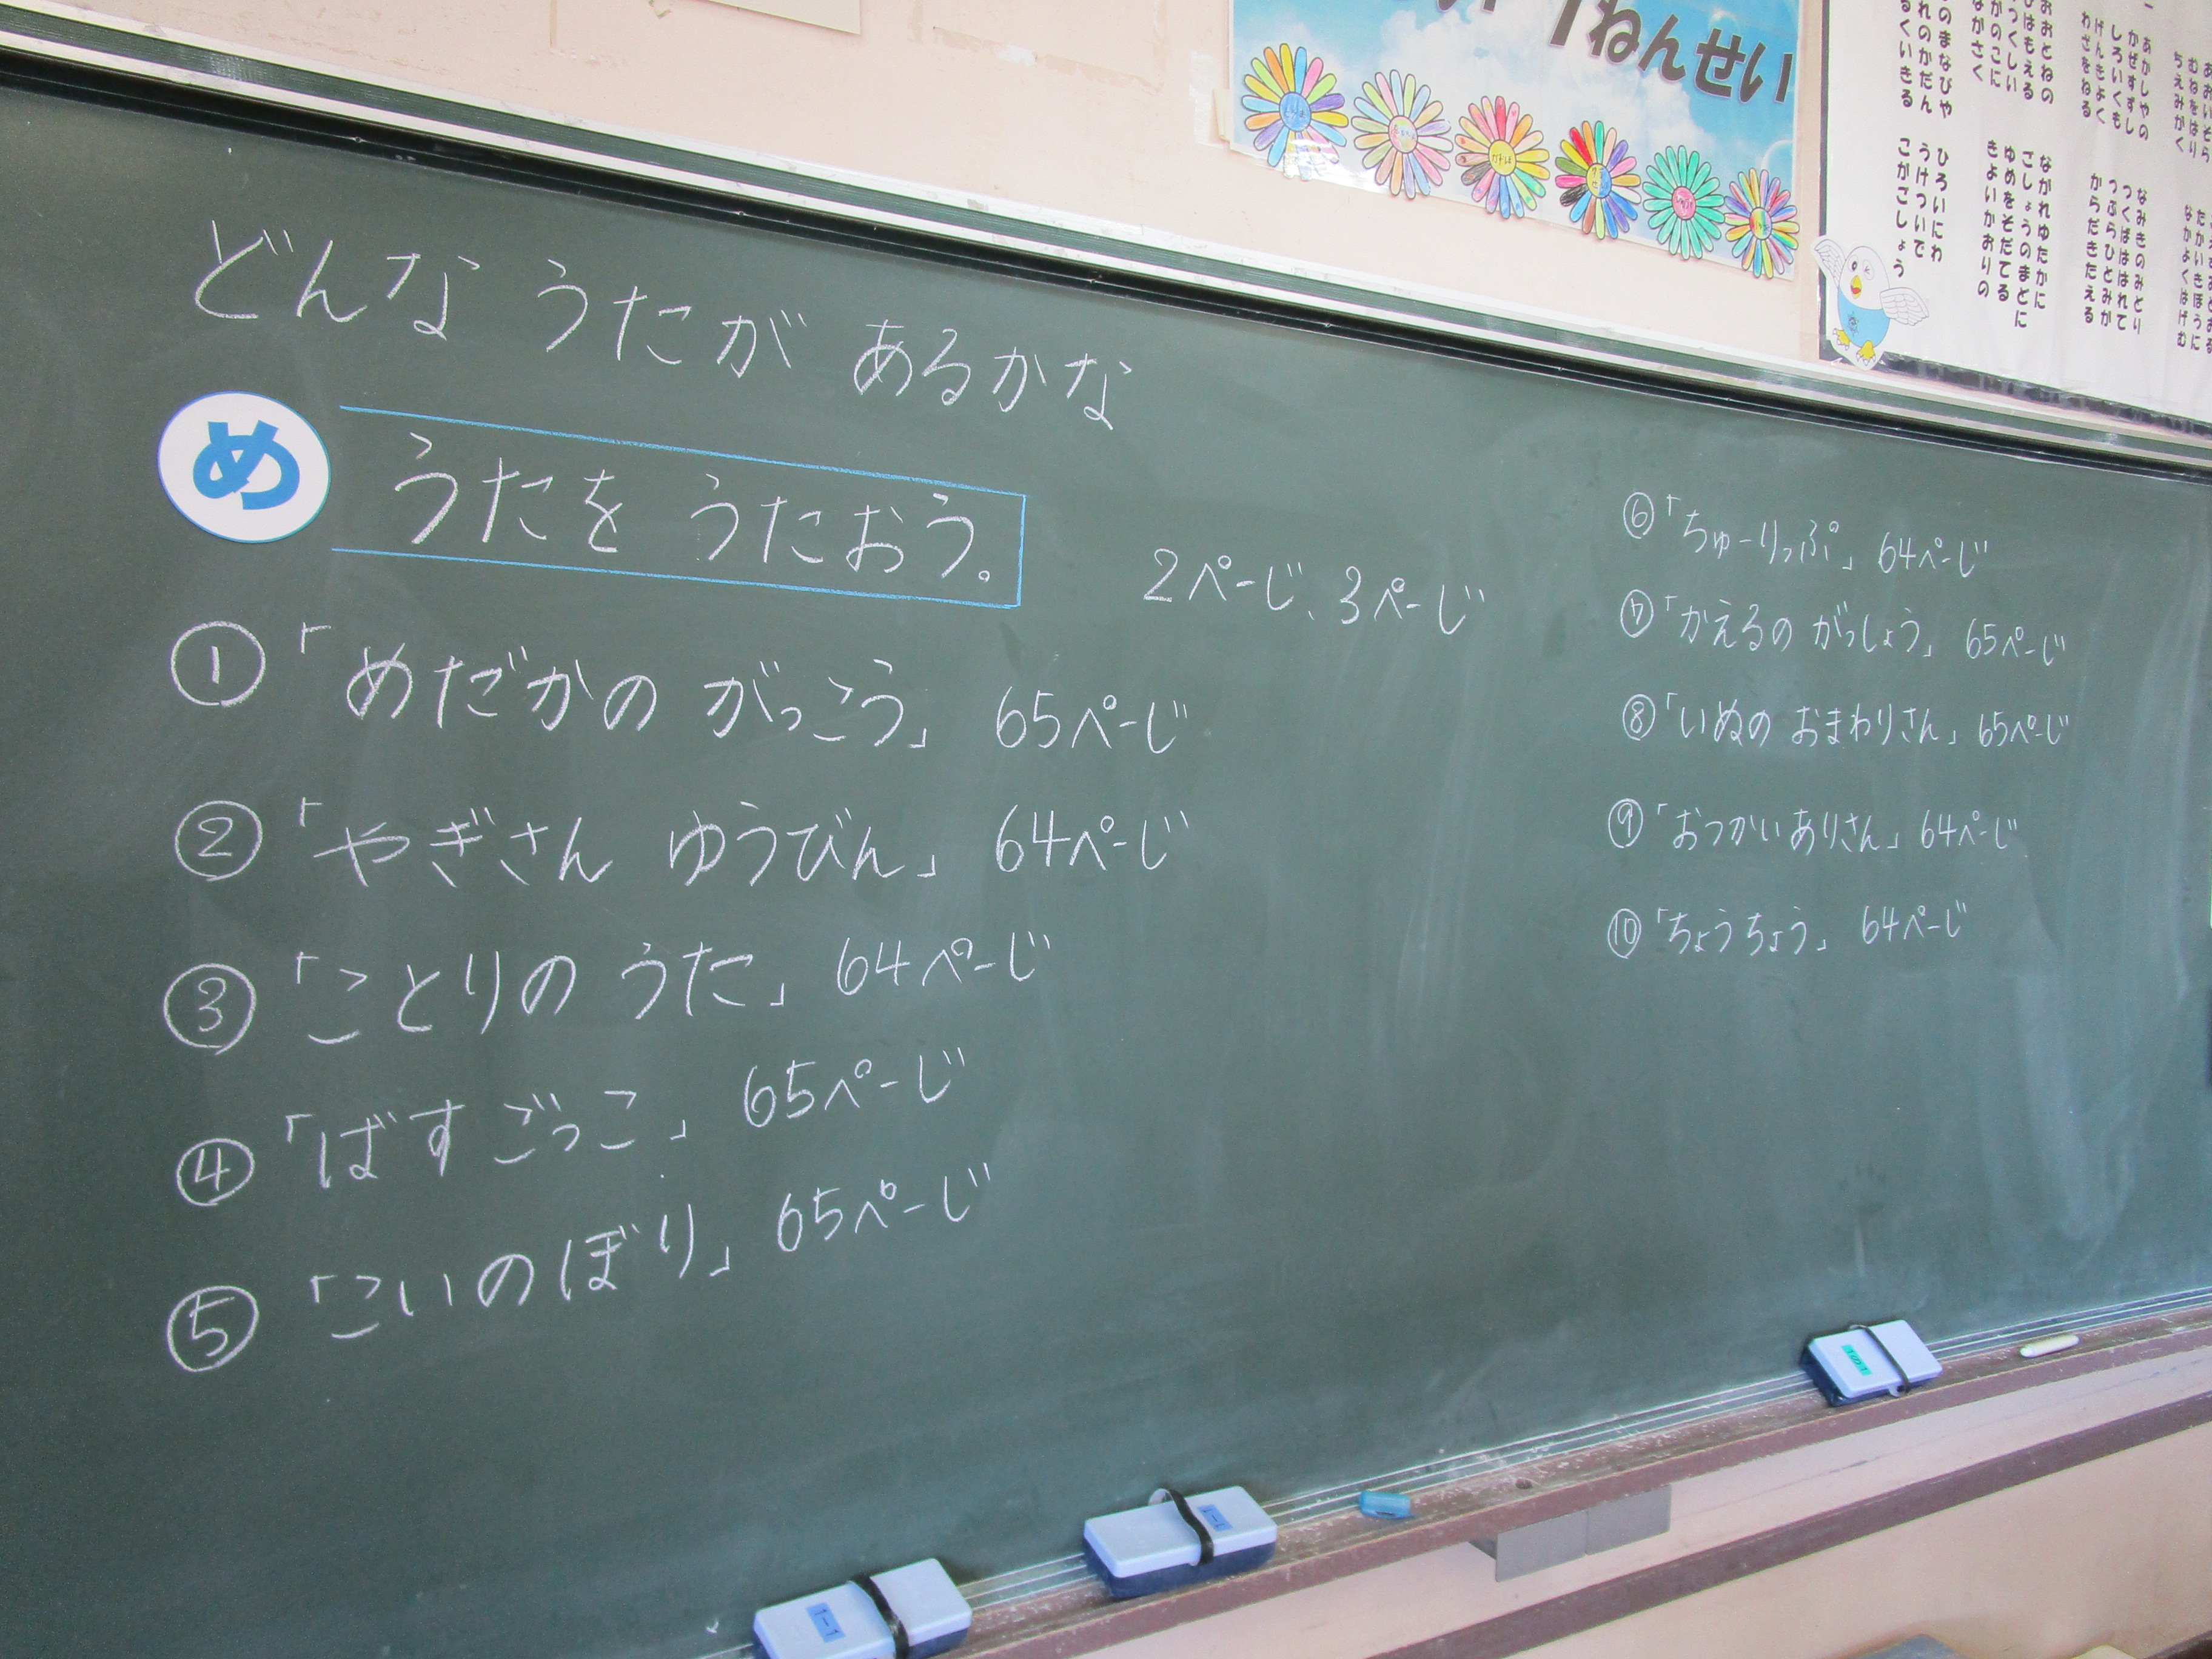 どんな うたが あるかな
め
うたを うたおう。
2ぺーじ、3ぺーじ
①「めだかの がっこう」 65ぺーじ
②「やぎさん ゆうびん」 64ぺーじ
③「ことりの うた」 64ぺーじ
④「ばす ごっこ」 65ぺーじ
⑤「こいのぼり」 65ぺーじ
⑥「ちゅーりっぷ」 64ぺーじ
⑦「かえるの がっしょう」 65ぺーじ
⑧「いぬの おまわりさん」 65ぺーじ
⑨「おつかいありさん」 64ぺーじ
⑩「ちょうちょう」 64ぺーじ
1ねんせい
むねをはり
ちえみがく
なかよくはげむ
あかしやの
かぜすずし
しろいくも
げんきよく
わざをねる
なみきのみとり
つくばははれて
つぶらひとみが
からだきたえる
おおとねの
ながれゆたかに
ごしょうのまどに
ゆめをそだてる
きよいかおりの
ひろいにわ
うけついで
こがごしょう
1-1
1-1
1の1